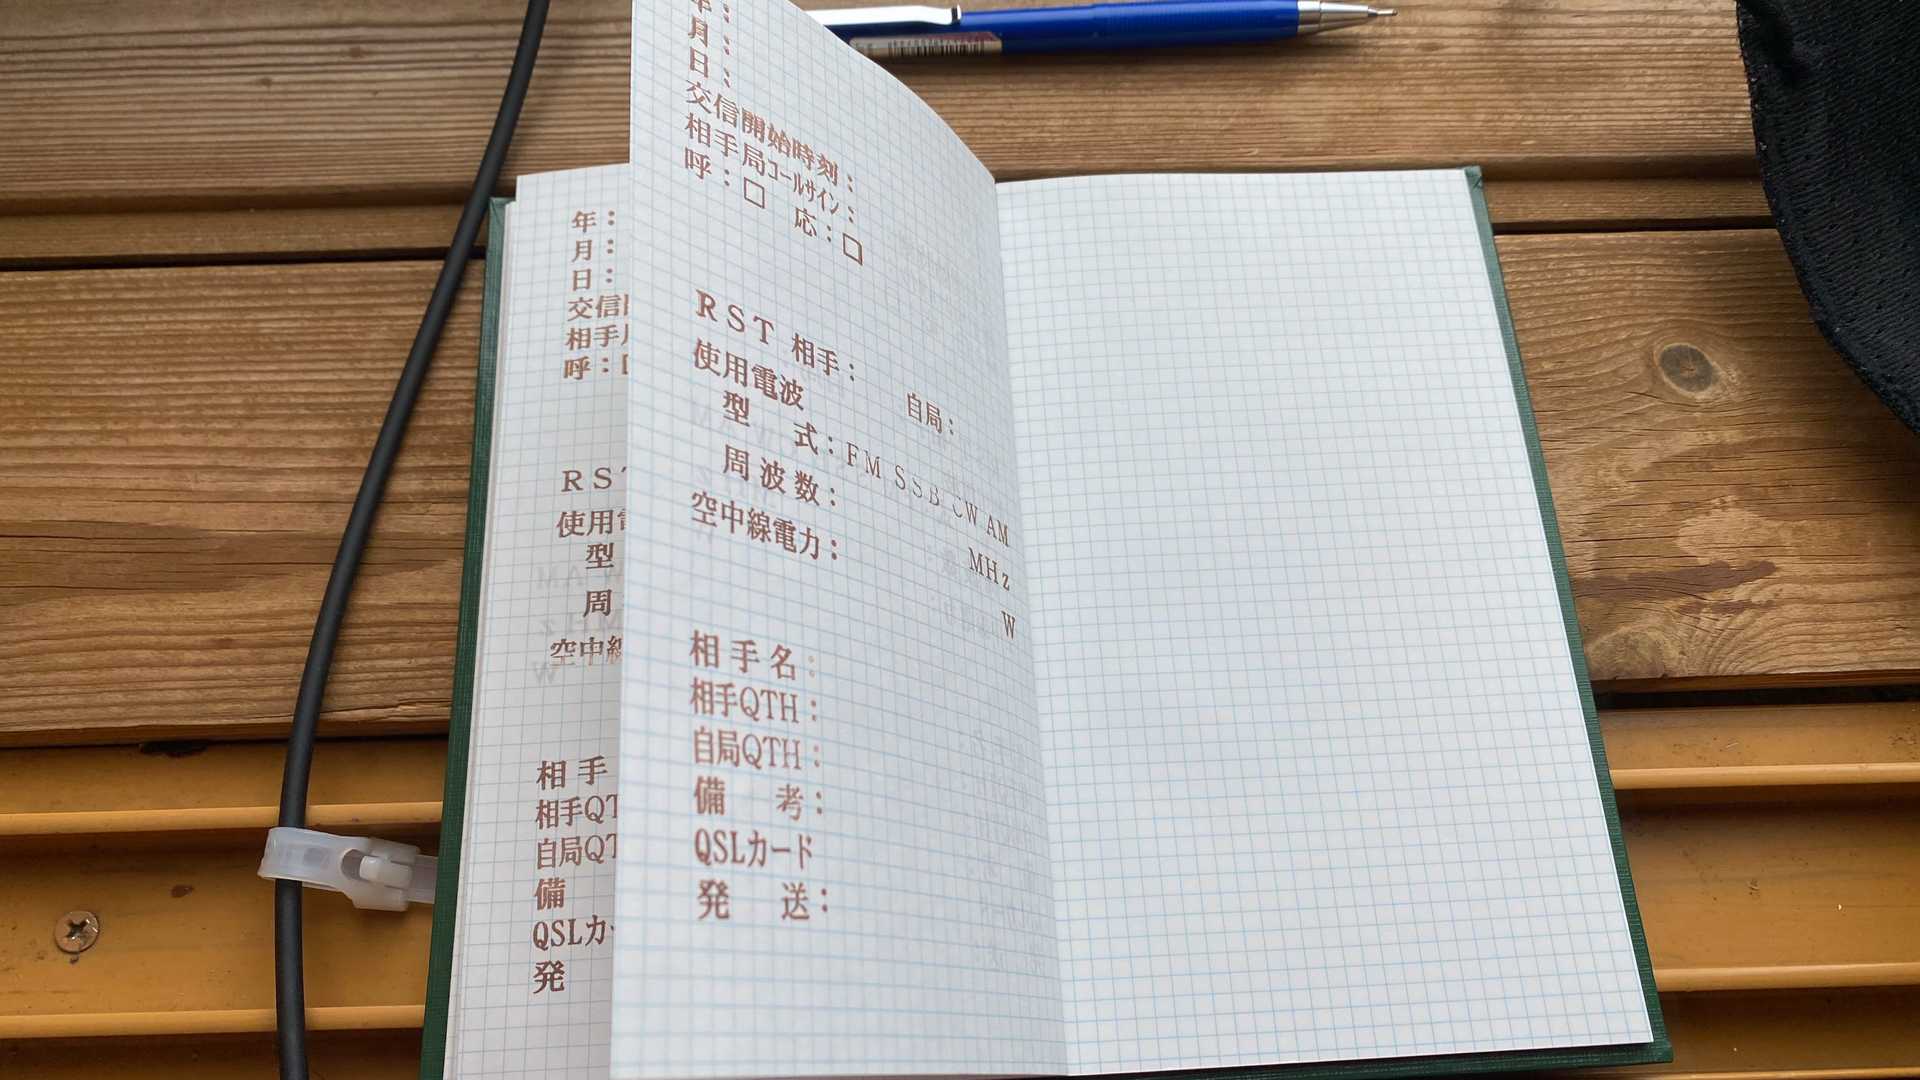 年：
月：
日：
交信
相手
呼：
RS
使用
型
周
空中線
相手
相手QT
自局QT
備
QSLカ
発
年：
月：
日：
交信開始時刻：
相手局コールサイン：
呼：□ 応：□
RST 相手： 自局：
使用電波
型 式：FM SSB CW AM
周波数： MHz
空中線電力： W
相手名：
相手QTH：
自局QTH：
備 考：
QSLカード
発 送：